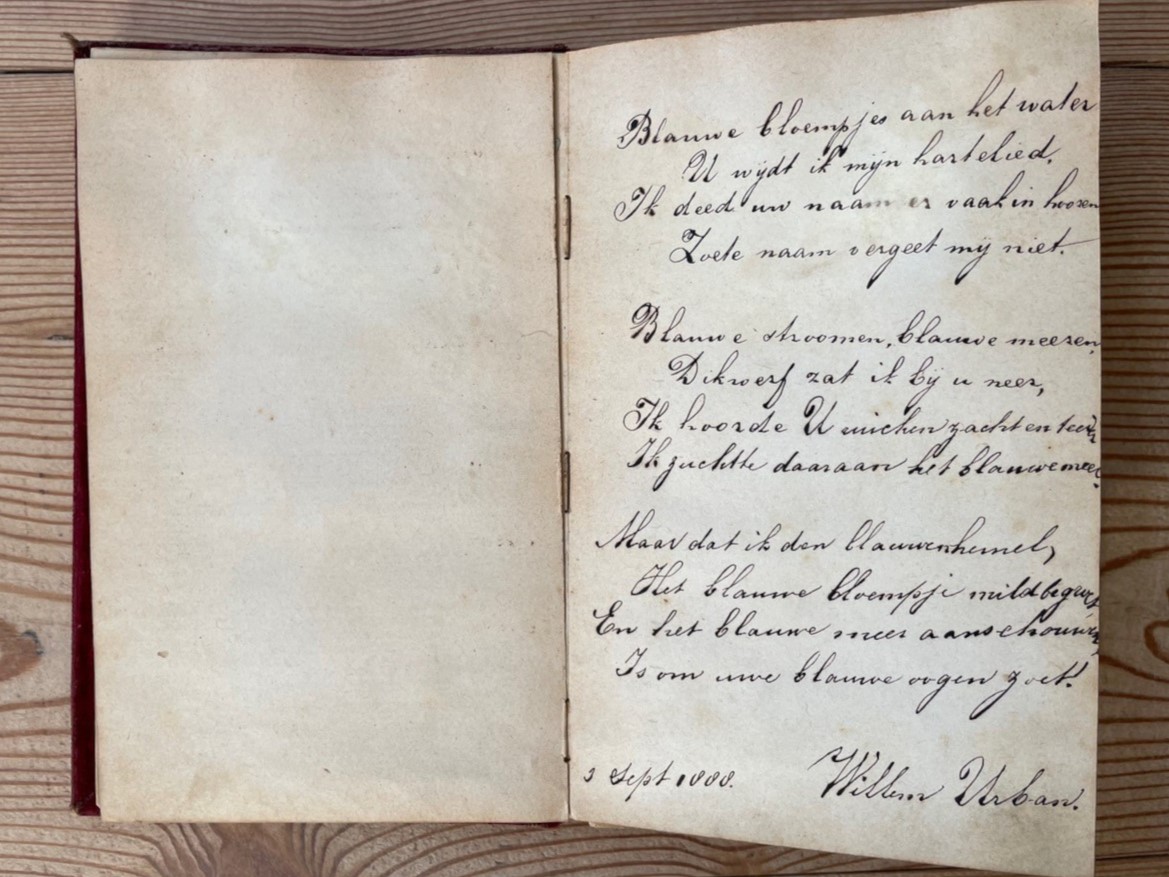 Blauwe bloempjes aan het water
U wijdt ik mijn hartelied,
Ik deed uw naam er vaak in hooren
Zoete naam vergeet mij niet.
Blauwe stroomen, blauwe meeren,
Dikwerf zat ik bij u neer,
Ik hoorde U zacht en teer
Ik zuchtte daar aan het blauwe meer.
Maar dat ik den blauwen hemel,
Het blauwe bloempje mild
En het blauwe meer aanschouw
Is om uwe blauwe oogen zoet!
3 Sept 1888. Willem Urban.